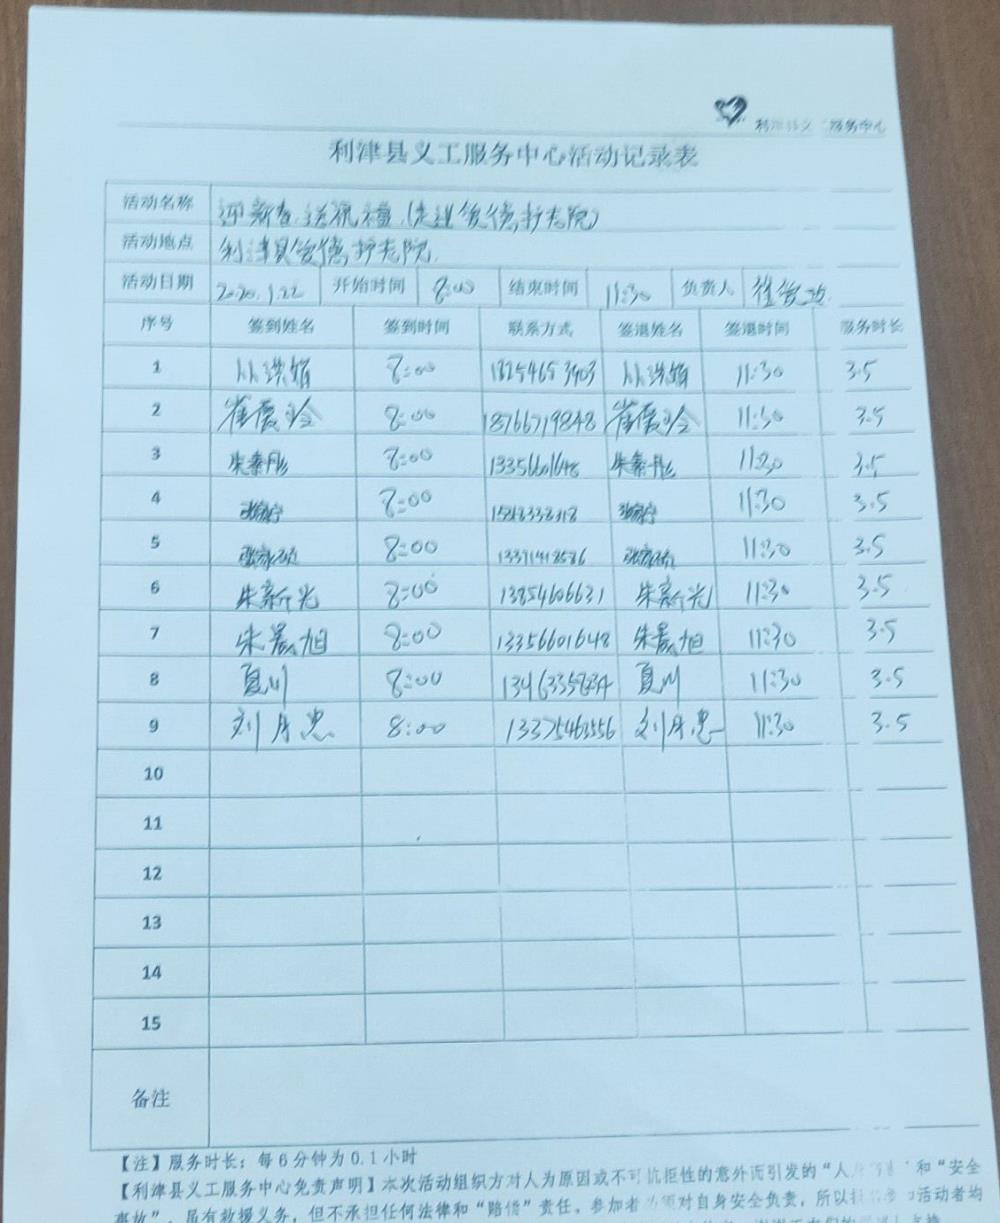 利津县义工服务中心
利津县义工服务中心活动记录表
活动名称 迎新春.送祝福.(走进俊德护老院)
活动地点 利津县俊德护老院.
活动日期 2020.1.22 开始时间 8:00 结束时间 11:30 负责人
序号 签到姓名 签到时间 联系方式 签退姓名 签退时间 服务时长
1 8:00 11:30 3.5
2 8:00 18766719848 11:30 3.5
3 8:00 13356601648 11:30 3.5
4 8:00 11:30 3.5
5 8:00 11:30 3.5
6 朱新光 8:00 13854606631 朱新光 11:30 3.5
7 朱晨旭 8:00 13356601648 朱晨旭 11:30 3.5
8 夏川 8:00 夏川 11:30 3.5
9 刘月忠 8:00 13375463556 刘月忠 11:30 3.5
10
11
12
13
14
15
备注
【注】服务时长：每6分钟为0.1小时
【利津县义工服务中心免责声明】本次活动组织方对人为原因或不可抗拒性的意外而引发的“人身 和“安全
事故”，虽有救援义务，但不承担任何法律和“赔偿”责任。参加者 须对自身安全负责，所以 参加活动者均